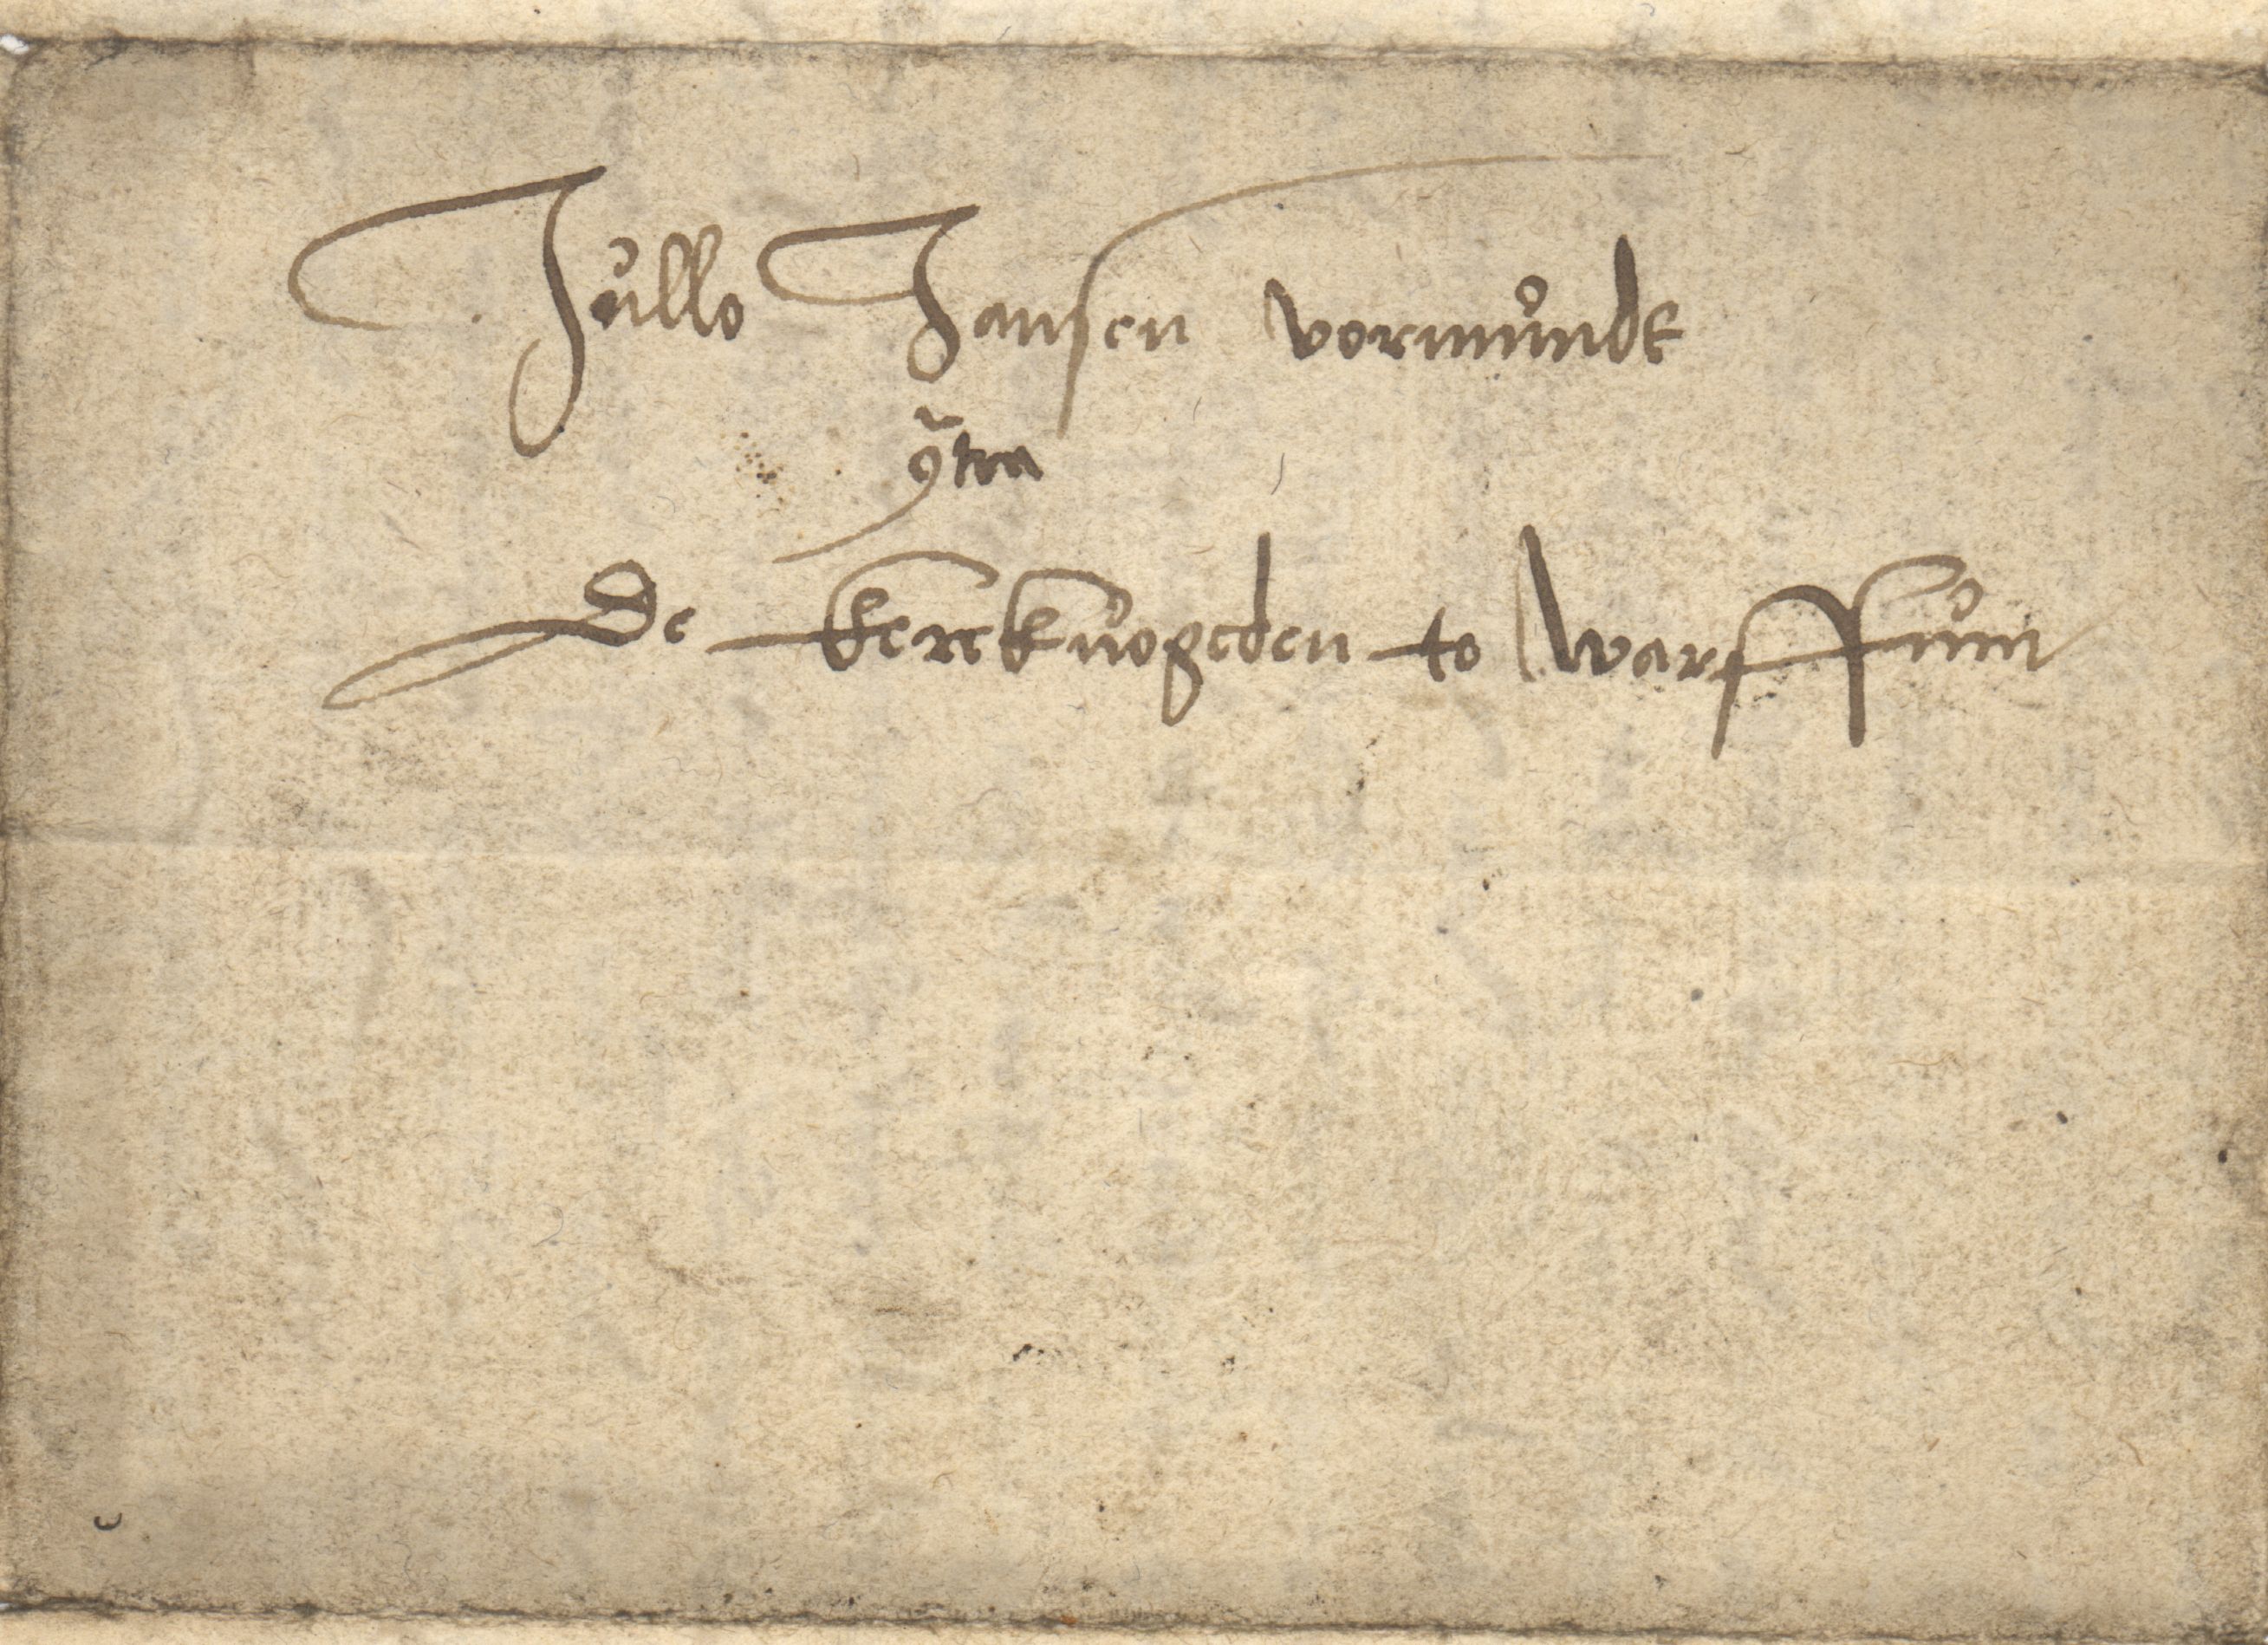 Jullo Jansen vormunde
9tra
De kerckuogeden to warffum